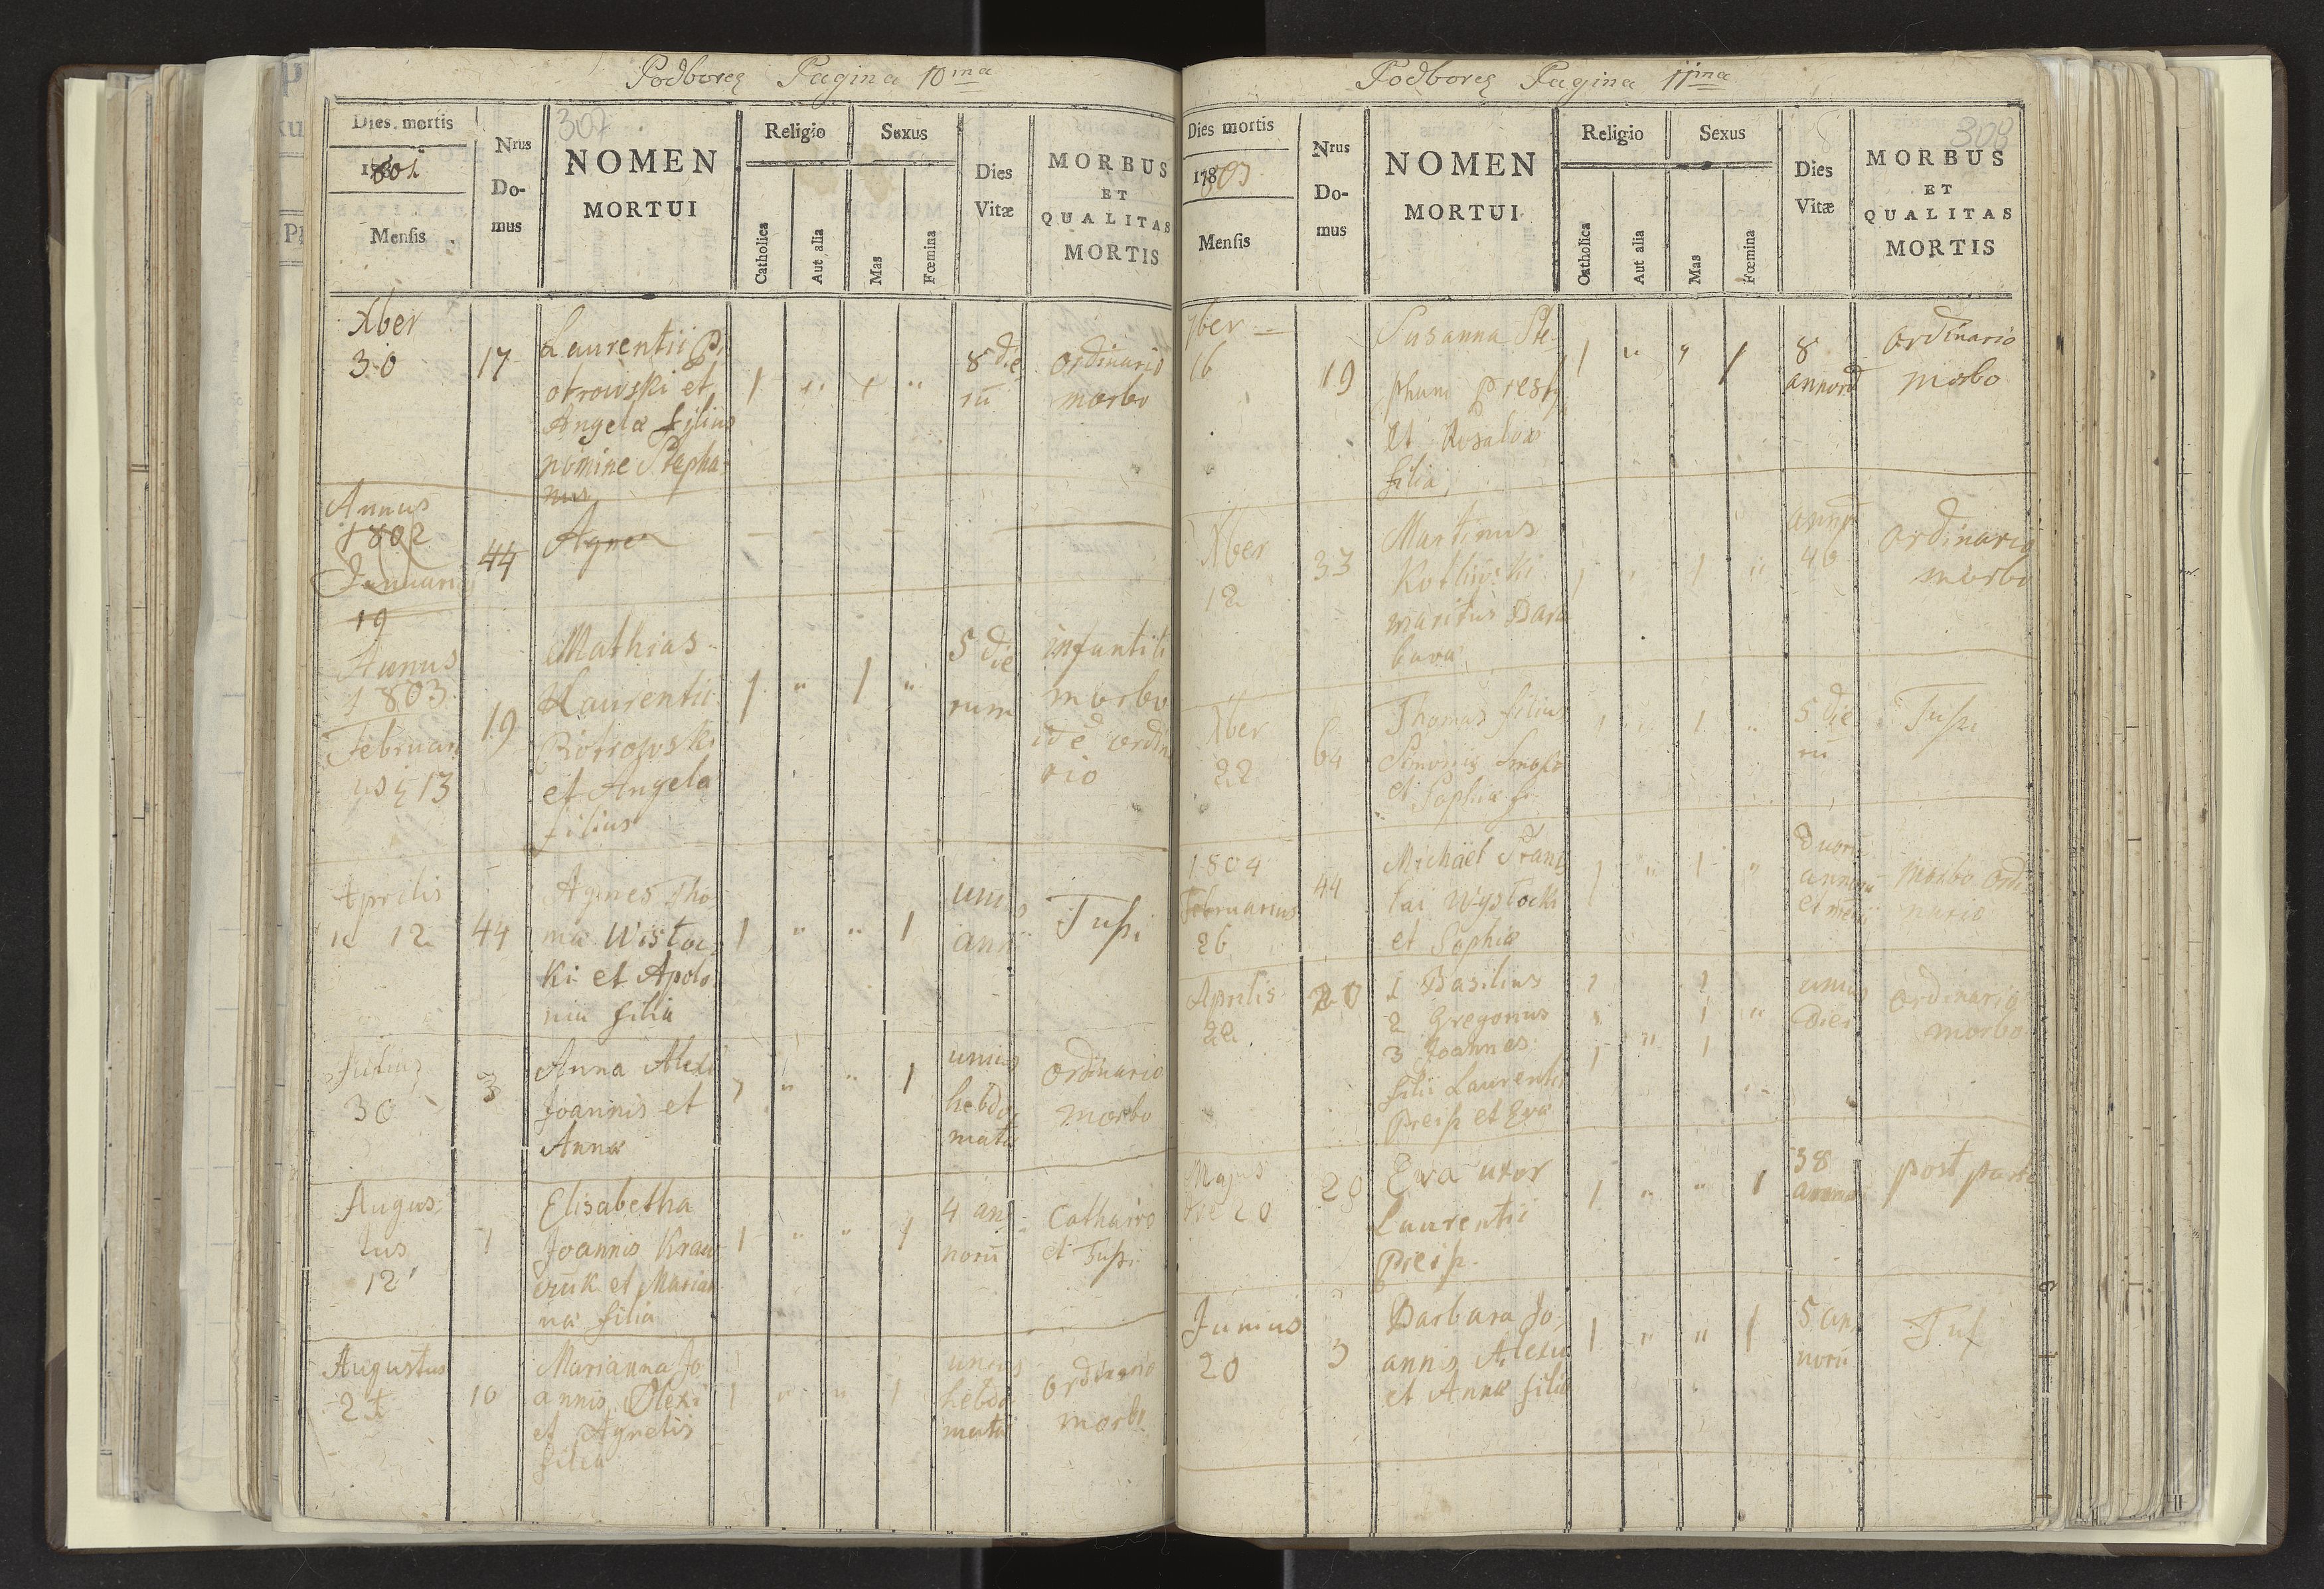 Podborcz Pagina 10ma
307
Dies mortis
1801
Mensis
Nrus
Do-
mus
NOMEN
MORTUI
Religio
Catholica
Aut alia
Sexus
Mas
Fœmina
Dies
Vitæ
MORBUS
ET
QUALITAS
MORTIS
Xber
30
17
Laurentii Pi
otrowski et
Angelæ filius
nomine Stepha
nus
1 " 1 "
8 die
rū
ordinario
morbo
Annus
1802
Januarii
19
44
Agnes
Annus
1803
Februari
us 13
19
Mathias
Laurentii
Piotrowski
et Angela
filius
1 " 1 "
5 die
rum
infantili
morbo
ordin
rio
Aprilis
12
44
Agnes Tho
mæ Wistoc
ki et Apolo
niæ filia
1 " " 1
unius
anni
Tussi
Julius
30
3
Anna Alexi
Joannis et
Annæ
1 " " 1
unius
hebdo
mate
ordinario
morbo
Augus
tus
12
7
Elisabetha
Joannis Kraw
czuk et Marian
næ filia
1 " " 1
4 an
norū
Cathairo
et Tussi
Augustus
10
Marianna Jo
annis Olexi
et Agnetis
filia
1 " " 1
unius
hebdo
mate
ordinario
morbo
Podborcz Pagina 11ma
308
Dies mortis
1803
Mensis
Nrus
Do-
mus
NOMEN
MORTUI
Religio
Catholica
Aut alia
Sexus
Mas
Fœmina
Dies
Vitæ
MORBUS
ET
QUALITAS
MORTIS
7ber
16
19
Susanna Ste
phani Preis
et Rosaliæ
filia
1 " " 1
8
annorū
ordinario
morbo
Xber
12
33
Martinus
maritus Bara
baræ
1 " 1 "
46
ordinario
morbo
Xber
22
64
Thomas filius
et Sophiæ
1 " 1 "
5 die
rū
Tussi
1804
Februarius
26
44
Michael
Wystocki
et Sophiæ
1 " 1 "
duorū
annorū
morbo ordi
nario
Aprilis
22
20
1 Basilius
2 Gregorius
3 Joannes
filii Laurentii
Preiss et Evæ
unius
diei
ordinario
morbo
Majus
die 20
20
Eva uxor
Laurentii
Preiss
1 " " 1
38
annorū
post partū
Junius
20
3
Barbara Jo
annis Alexii
et Annæ filia
1 " " 1
5 an
norū
Tuss